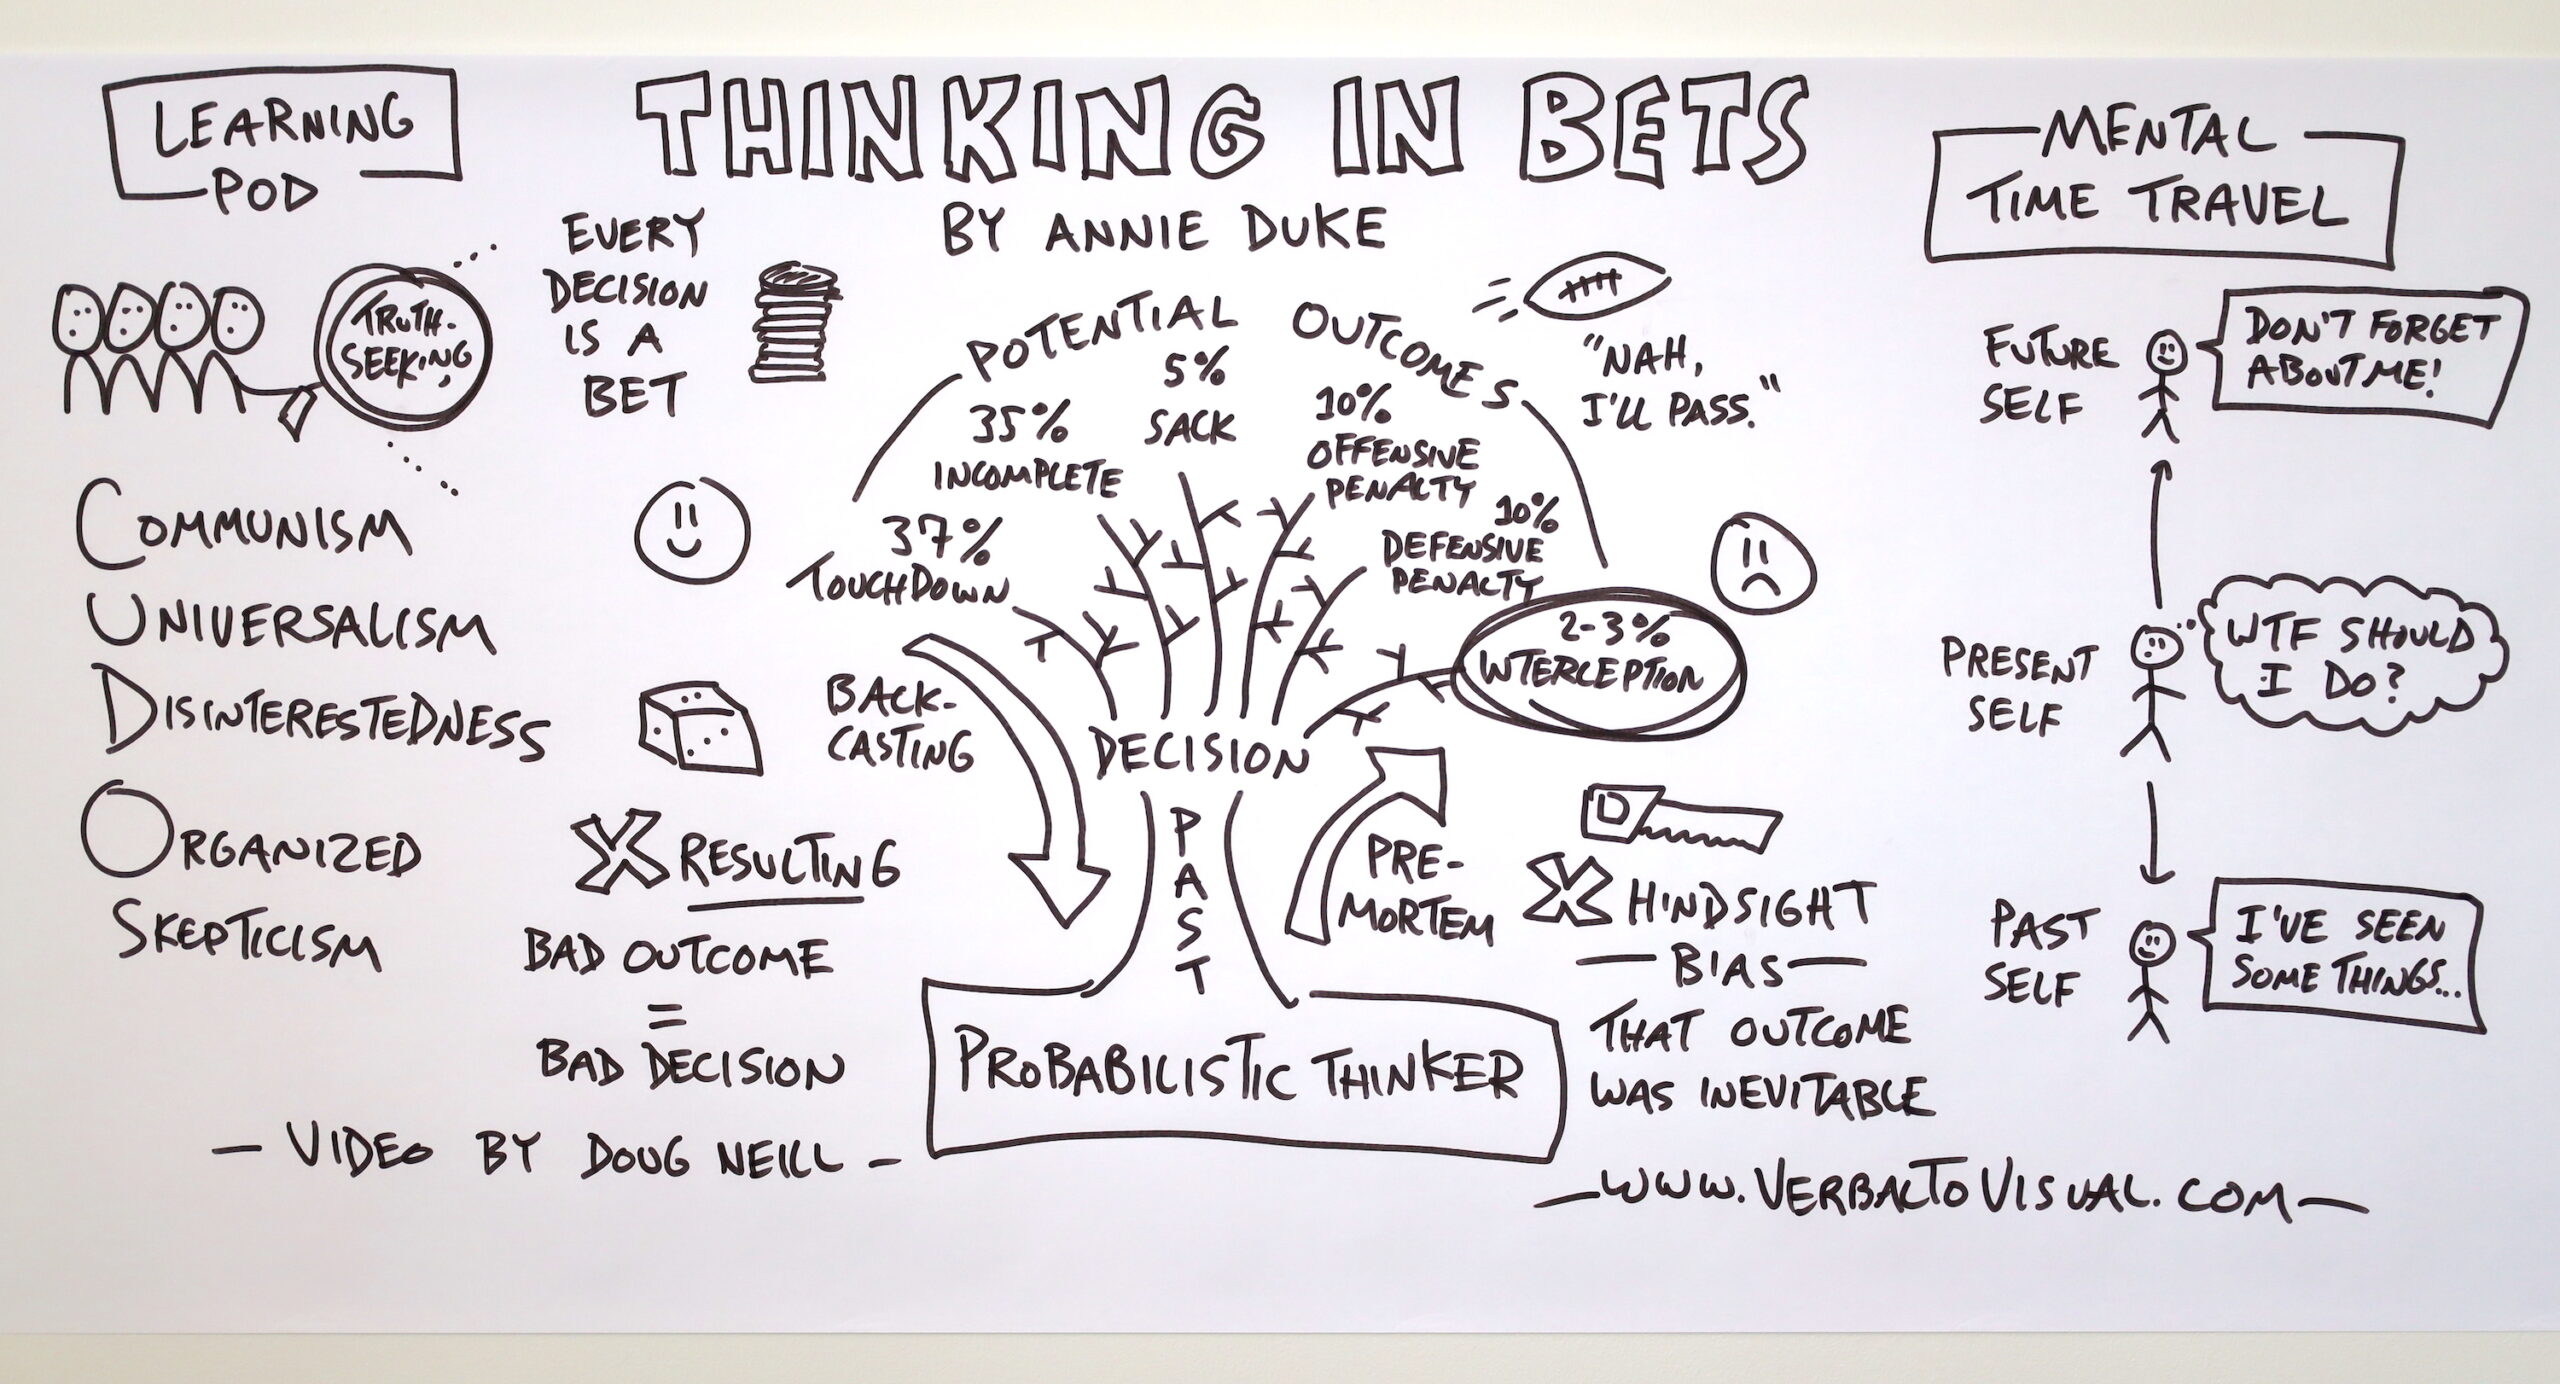 LEARNING
POD
THINKING IN BETS
BY ANNIE DUKE
MENTAL
TIME TRAVEL
TRUTH-
SEEKING
COMMUNISM
UNIVERSALISM
DISINTERESTEDNESS
ORGANIZED
SKEPTICISM
EVERY
DECISION
IS A
BET
POTENTIAL OUTCOMES
37%
TOUCHDOWN
35%
INCOMPLETE
5%
SACK
10%
OFFENSIVE
PENALTY
10%
DEFENSIVE
PENALTY
2-3%
INTERCEPTION
"NAH,
I'LL PASS."
BACK-
CASTING
DECISION
PAST
PRE-
MORTEM
PROBABILISTIC THINKER
X RESULTING
BAD OUTCOME
=
BAD DECISION
X HINDSIGHT
BIAS
THAT OUTCOME
WAS INEVITABLE
FUTURE
SELF
DON'T FORGET
ABOUT ME!
PRESENT
SELF
WTF SHOULD
I DO?
PAST
SELF
I'VE SEEN
SOME THINGS...
- VIDEO BY DOUG NEILL -
- WWW.VERBALTOVISUAL.COM -